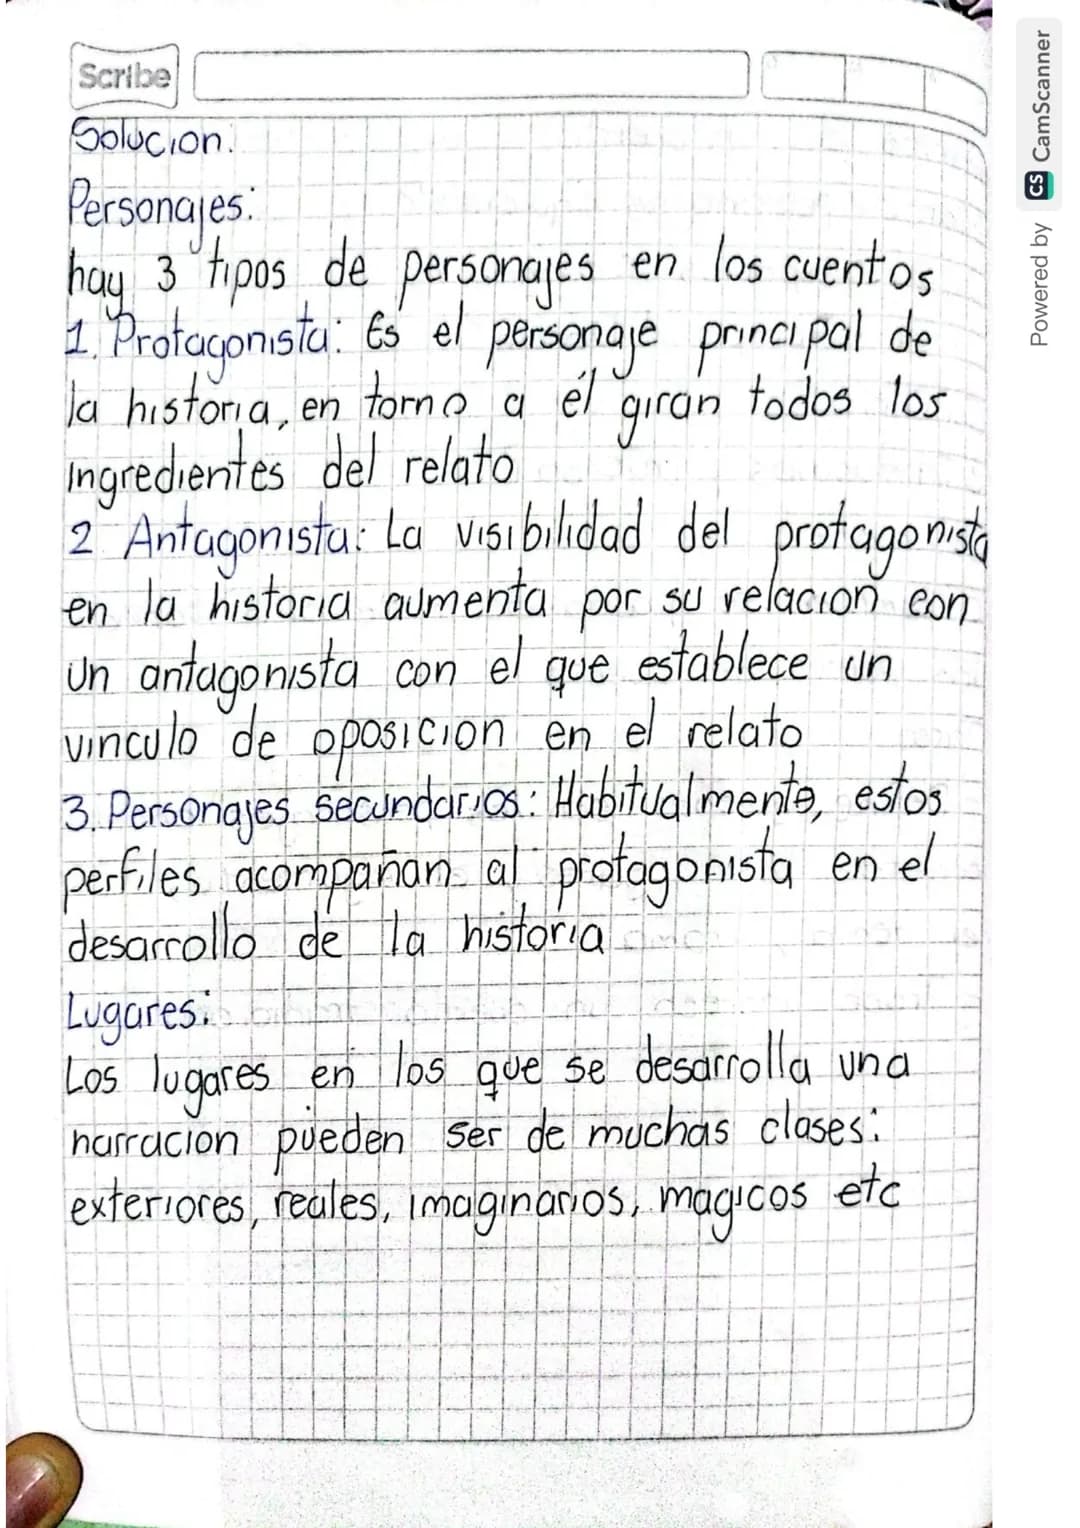 Scribe
Solucion.
Personajes:
hay 3 tipos de personajes en los cuentos
1. Protagonista: Es el personaje principal de
la historia, en torno a él giran todos los
ingredientes del relato
2 Antagonista: La visibilidad del protagonista
en la historia aumenta por su relacion con
un antagonista con el que establece un
vinculo de oposicion en el relato
3. Personajes secundarios: Habitualmente, estos
perfiles acompañan al protagonista en el
desarrollo de la historia
Lugares:
Los lugares en los que se desarrolla una
narracion pueden ser de muchas clases:
exteriores, reales, imaginarios, magicos etc
Powered by CS CamScanner